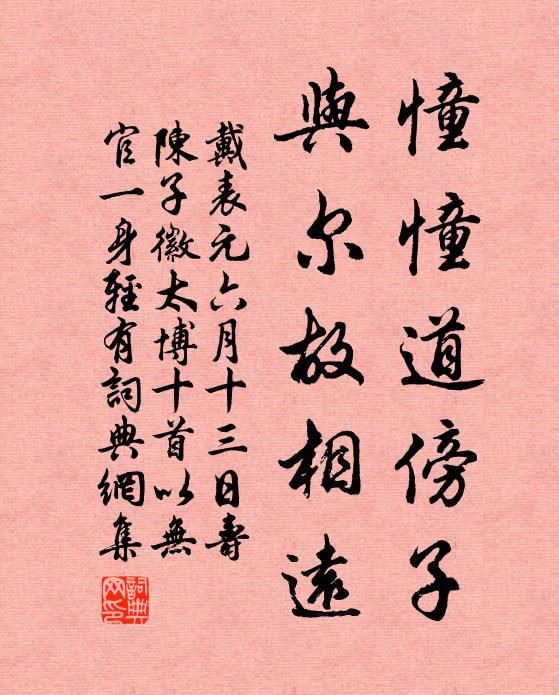 憧憧道傍子
與尔故相遠
戴表元六月十三日壽
陳子徽太博十首以無
官一身輕有詞典網集
詞典網印